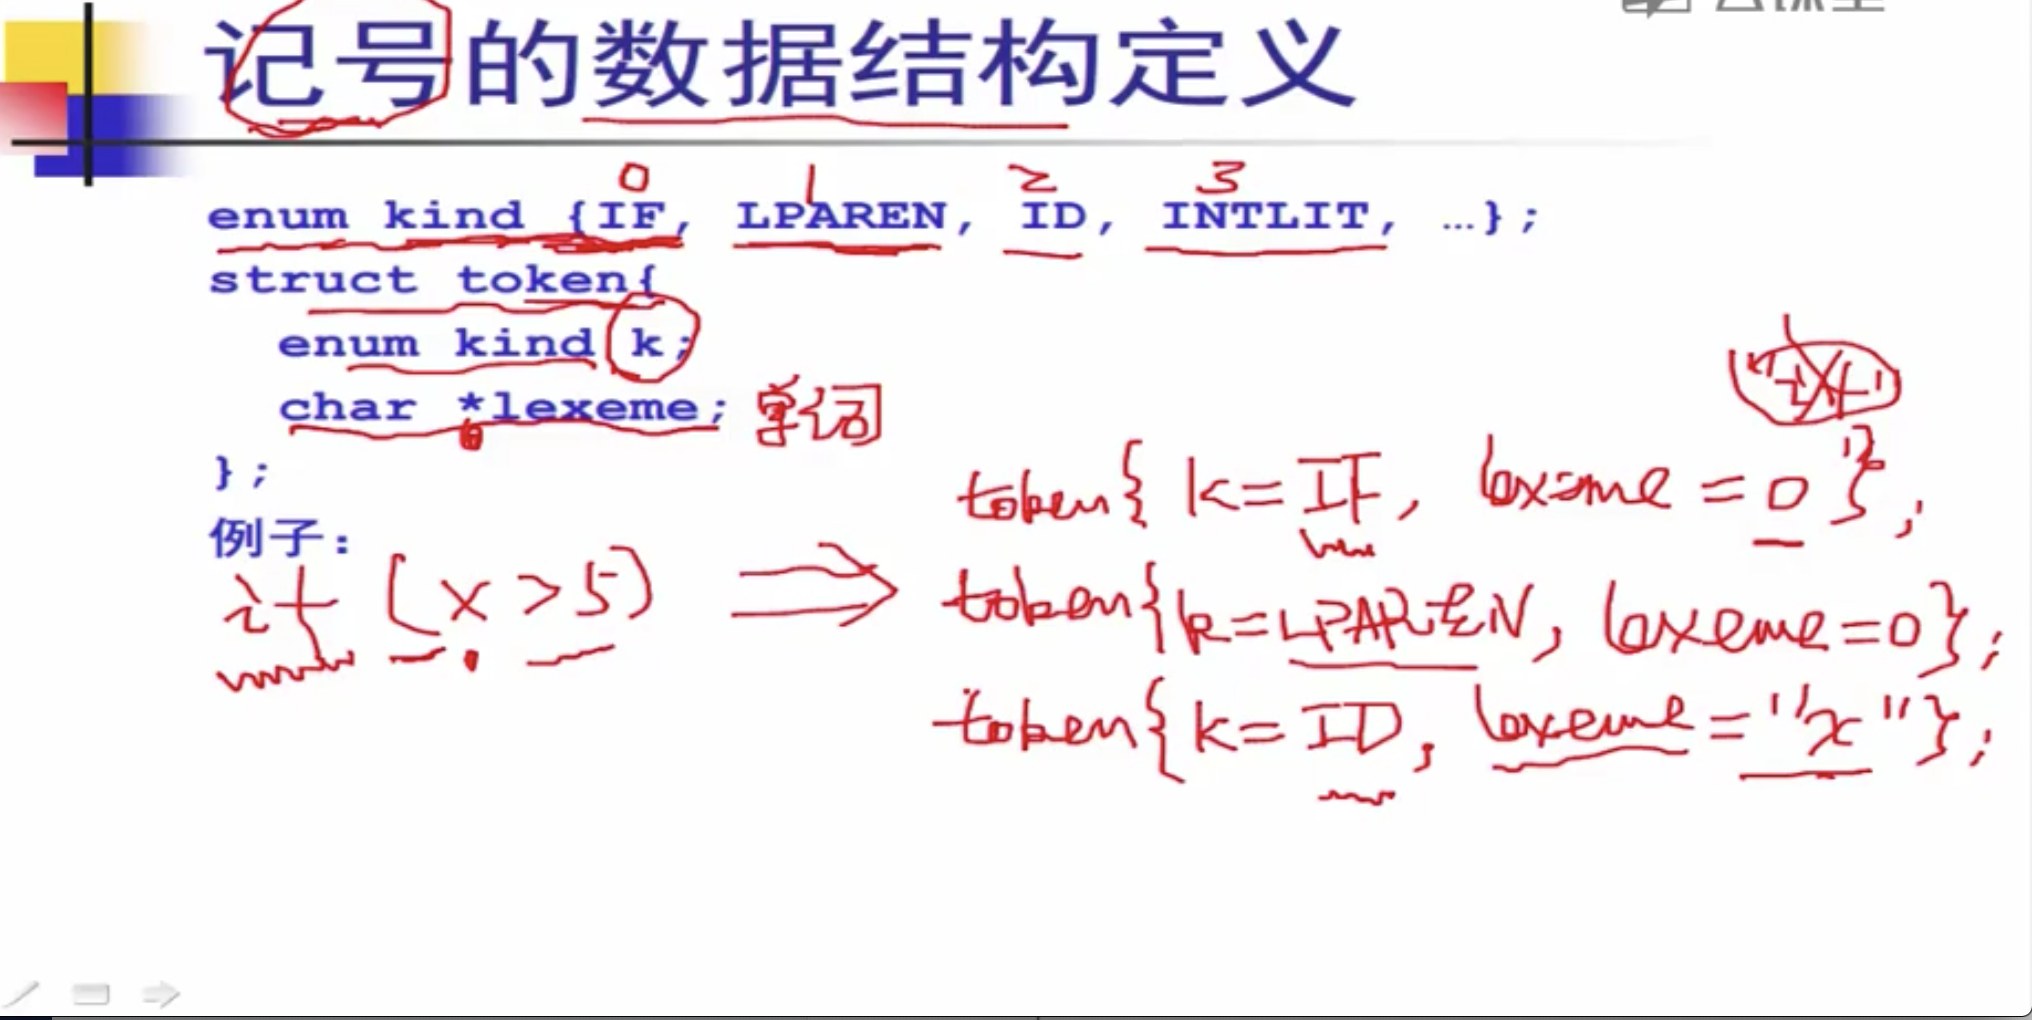 记号的数据结构定义
0 1 2 3
enum kind {IF, LPAREN, ID, INTLIT, …};
struct token{
enum kind k;
char *lexeme; 单词
};
例子:
if (x > 5)
"if"
token{ k = IF, lexeme = 0 };
token{ k = LPAREN, lexeme = 0 };
token{ k = ID, lexeme = "x" };